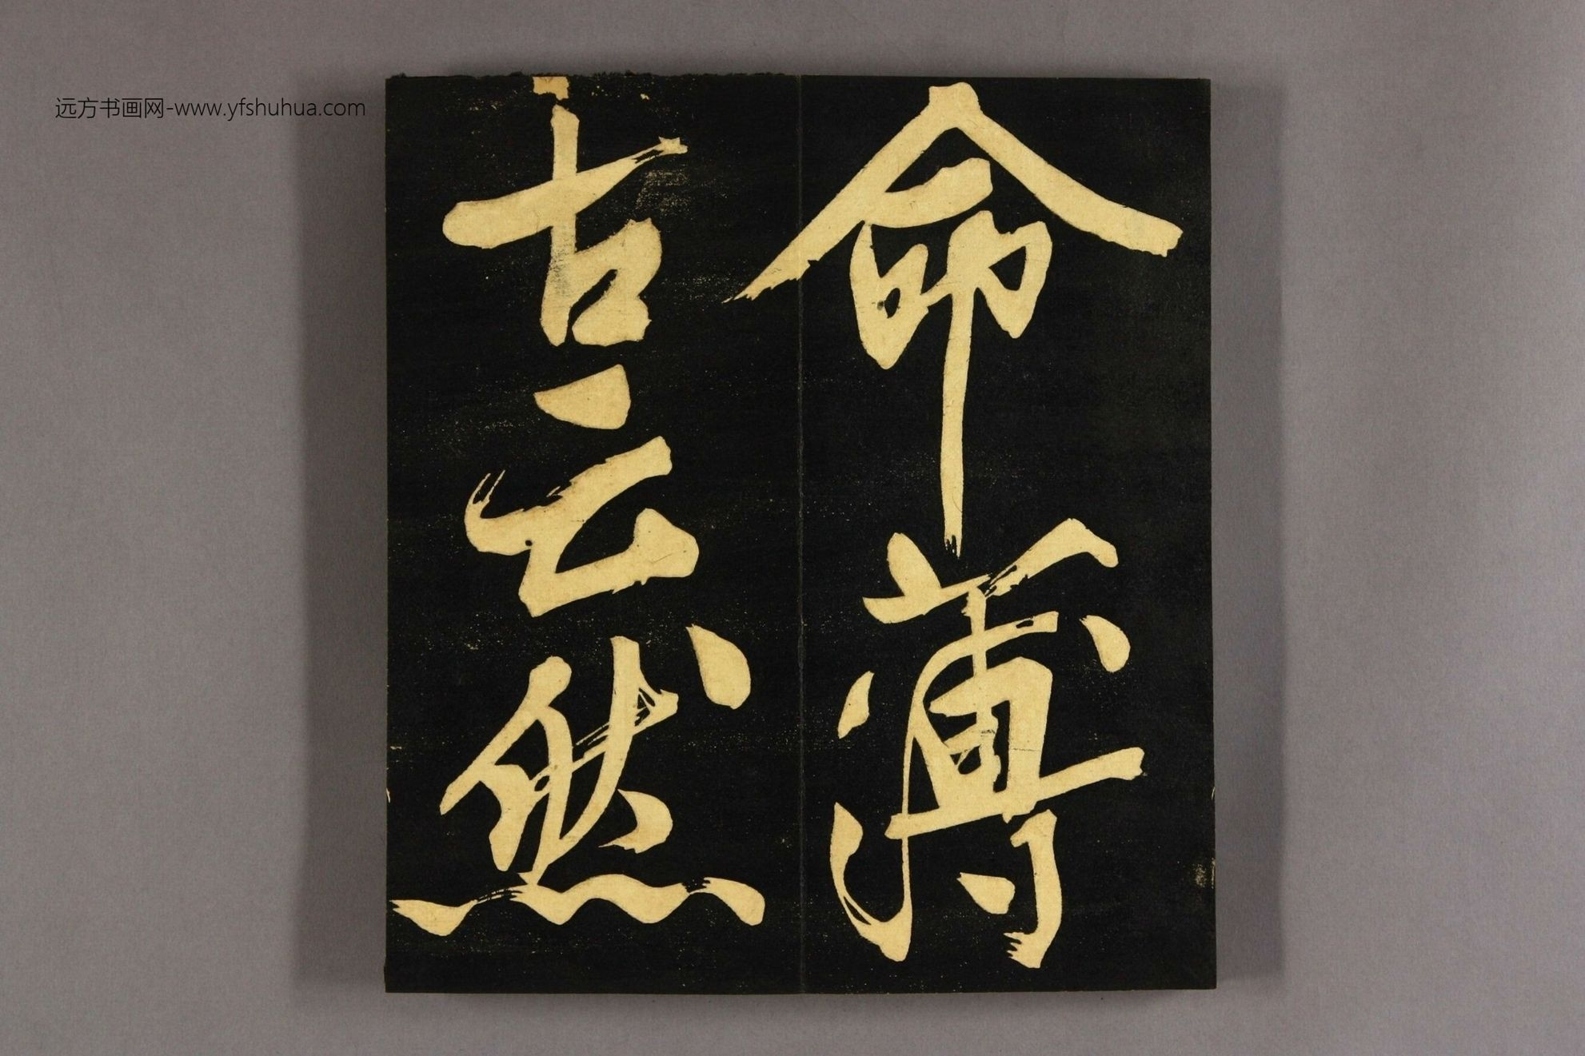 远方书画网-www.yfshuhua.com
命薄
古云然